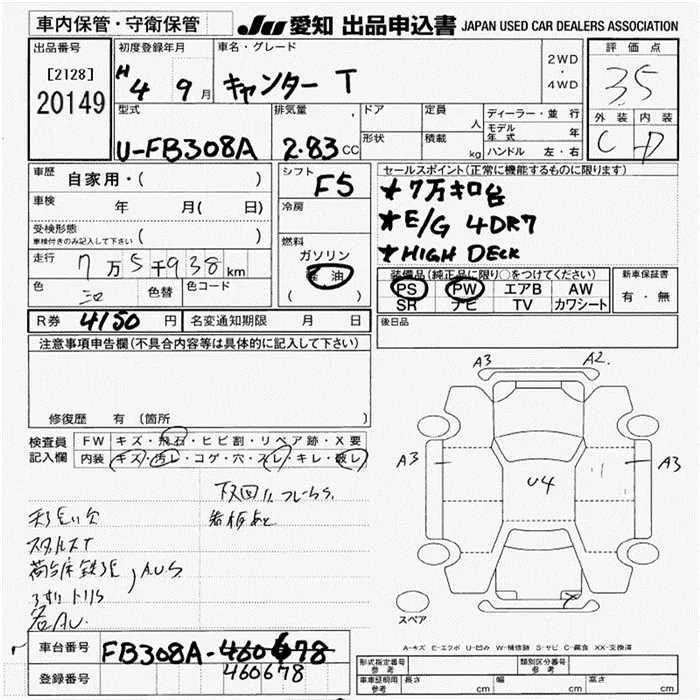 車内保管・守衛保管
JU 愛知 出品申込書 JAPAN USED CAR DEALERS ASSOCIATION
出品番号
[2128]
20149
初度登録年月
H4 9月
車名・グレード
キャンター T
2WD
・
4WD
評価点
3.5
外装 内装
C D
型式
U-FB308A
排気量
2.83 CC
ドア
形状
定員 人
積載 kg
ディーラー・並行
モデル年式 年
ハンドル 左・右
車歴 自家用・( )
車検 年 月( 日)
受検形態
車検付きのみ記入して下さい ( )
走行 7万5千938km
色 色替 色コード
シフト F5
冷房
燃料
ガソリン
軽油
( )
セールスポイント(正常に機能するものに限ります)
★7万キロ台
★E/G 4DR7
★HIGH DECK
装備品(純正品に限り○をつけてください)
PS PW エアB AW
SR ナビ TV カワシート
新車保証書
有・無
R券 4150 円
名変通知期限 月 日
後日品
注意事項申告欄(不具合内容等は具体的に記入して下さい)
修復歴 有(箇所 )
検査員
記入欄
FW キズ・飛石・ヒビ割・リペア跡・X要
内装 キズ・汚レ・コゲ・穴・スレ・キレ・破レ
A3 A2.
A3 U4 A3
スペア
荷台床鉄
A.U.S
A-キズ E-エクボ U-凹み W-補修跡 S-サビ C-腐食 XX-交換済
車台番号 FB308A-460678
登録番号 460678
形式指定番号
参考
類別区分番号
参考
車庫証明用
参考
長さ cm 幅 cm 高さ cm